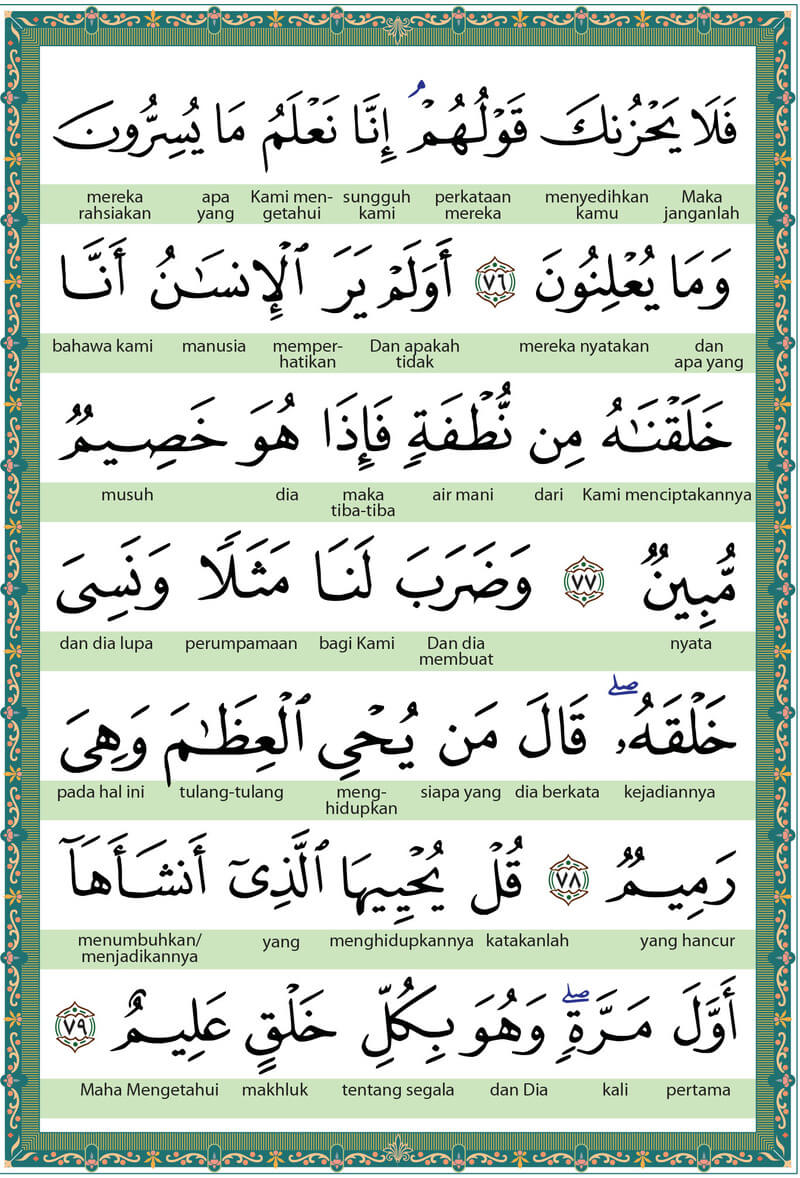 فَلَا يَحْزُنكَ قَوْلُهُمْ ۘ إِنَّا نَعْلَمُ مَا يُسِرُّونَ
Maka janganlah menyedihkan kamu perkataan mereka sungguh kami Kami men-getahui apa yang mereka rahsiakan
وَمَا يُعْلِنُونَ ٧٦ أَوَلَمْ يَرَ ٱلْإِنسَـٰنُ أَنَّا
dan apa yang mereka nyatakan Dan apakah tidak memper-hatikan manusia bahawa kami
خَلَقْنَـٰهُ مِن نُّطْفَةٍ فَإِذَا هُوَ خَصِيمٌ
Kami menciptakannya dari air mani maka tiba-tiba dia musuh
مُّبِينٌ ٧٧ وَضَرَبَ لَنَا مَثَلًا وَنَسِىَ
nyata Dan dia membuat bagi Kami perumpamaan dan dia lupa
خَلْقَهُۥ ۖ قَالَ مَن يُحْىِ ٱلْعِظَـٰمَ وَهِىَ
kejadiannya dia berkata siapa yang meng-hidupkan tulang-tulang pada hal ini
رَمِيمٌ ٧٨ قُلْ يُحْيِيهَا ٱلَّذِىٓ أَنشَأَهَآ
yang hancur katakanlah menghidupkannya yang menumbuhkan/menjadikannya
أَوَّلَ مَرَّةٍ ۖ وَهُوَ بِكُلِّ خَلْقٍ عَلِيمٌ ٧٩
pertama kali dan Dia tentang segala makhluk Maha Mengetahui